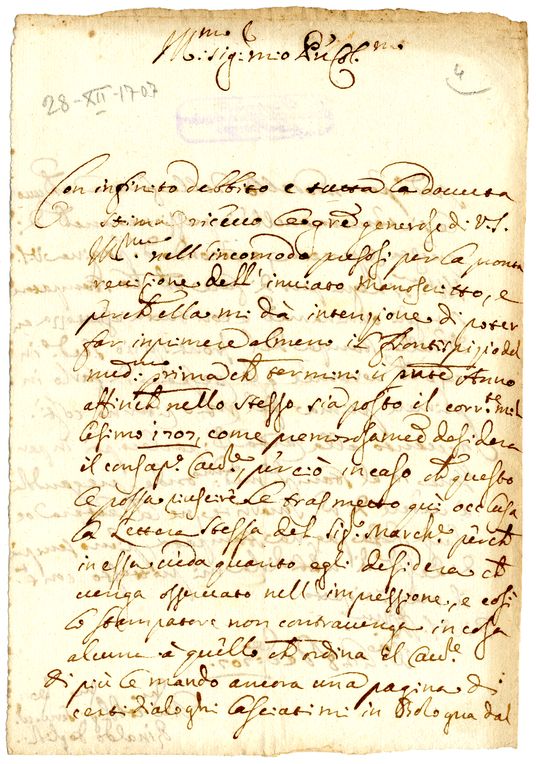 Ill.mo Sig.r mio P.ron Col.mo
4
28-XII-1707
Con infinito debbito e tutta la dovuta
stima ricevo le grẽ generose di V.S.
Ill.ma nell'incomodo presosi per la pronta
revisione dell'inviato manoscritto, e
perch'ella mi dà intenzione di poter
far imprimere almeno il frontispizio del
med.mo prima ch̃ termini il pñte Anno
affinch̃ nello stesso sia posto il corr.te mil
lesimo 1707, come premurosamẽ desidera
il consap.o Cav.re, perciò in caso ch̃ questo
le possa riuscire le trasmetto quì occlusa
la Lettera stessa del Sig.r March.e perch̃
in essa veda quanto egli desidera ch̃
venga osservato nell'impressione, e così
lo stampatore non contravenga in cosa
alcuna à quello ch̃ ordina il Cav.re
di più le mando ancora una pagina di
certi Dialoghi lasciatimi in Bologna dal